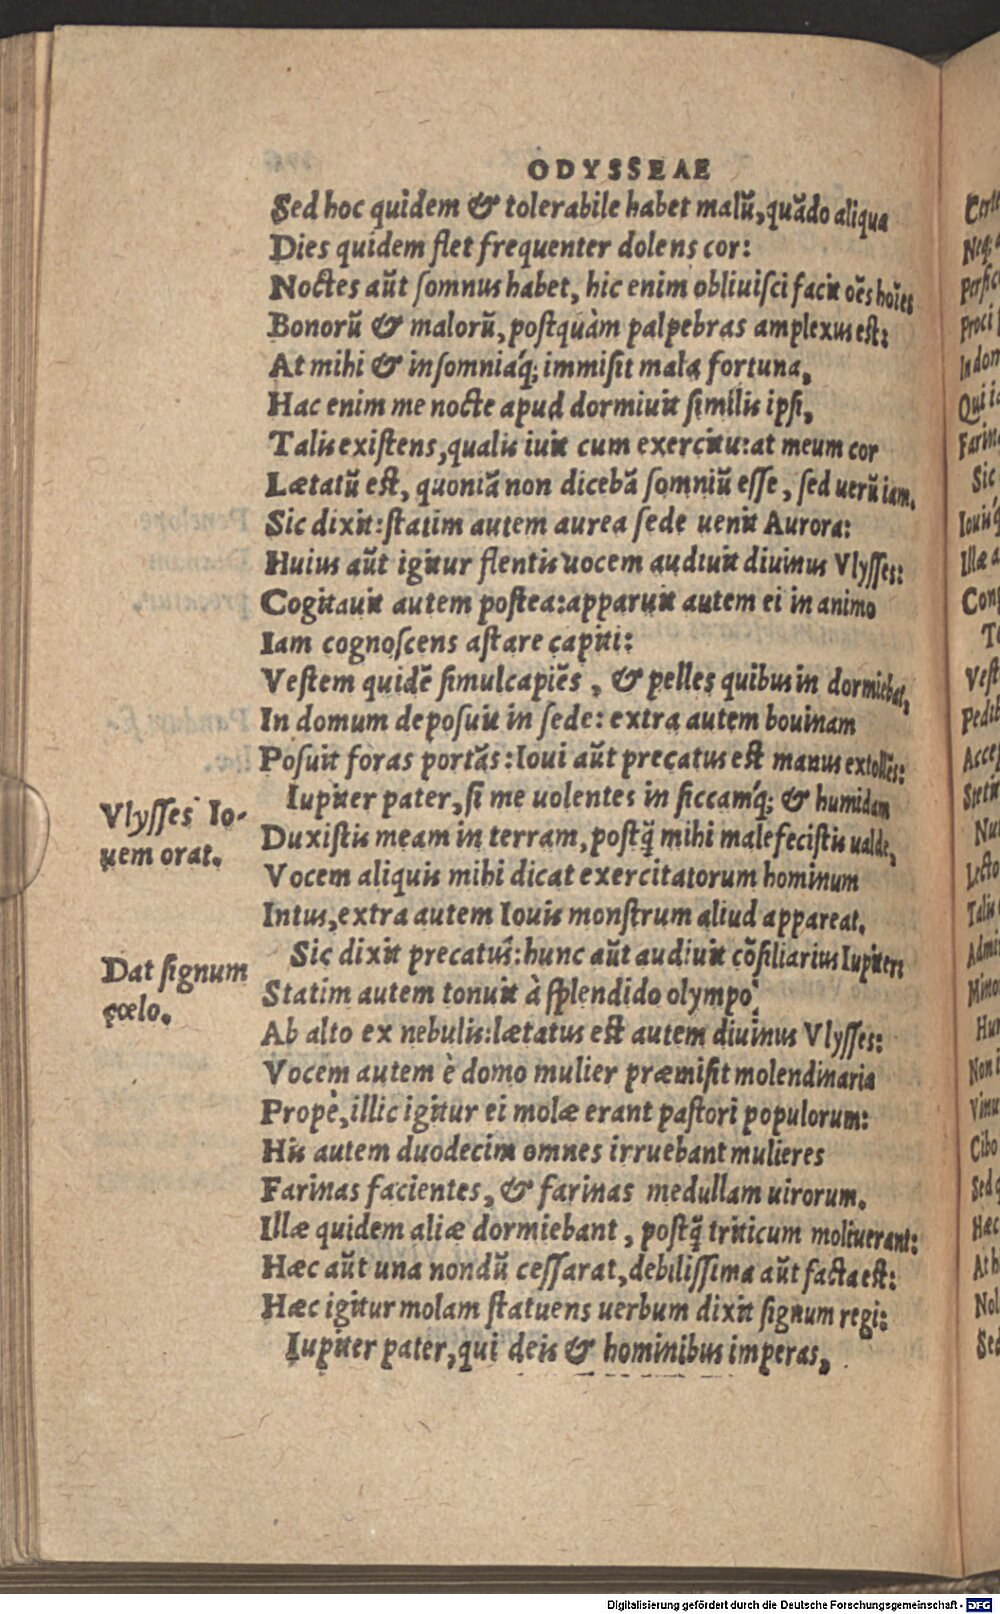 ODYSSEAE
Sed hoc quidem & tolerabile habet malũ, quãdo aliqua
Dies quidem flet frequenter dolens cor:
Noctes aũt ſomnus habet, hic enim obliuiſci facit oẽs hoĩes
Bonorũ & malorũ, poſtquàm palpebras amplexus eſt:
At mihi & inſomniaq́; immiſit mala fortuna,
Hac enim me nocte apud dormiuit ſimilis ipſi,
Talis exiſtens, qualis iuit cum exercitu: at meum cor
Lætatũ eſt, quoniã non dicebã ſomniũ eſſe, ſed uerũ iam.
Sic dixit: ſtatim autem aurea ſede uenit Aurora:
Huius aũt igitur flentis uocem audiuit diuinus Vlyſſes:
Cogitauit autem poſtea: apparuit autem ei in animo
Iam cognoſcens aſtare capiti:
Veſtem quidẽ ſimul capiẽs, & pelles quibus in dormiebat,
In domum depoſuit in ſede: extra autem bouinam
Poſuit foras portãs: Ioui aũt precatus eſt manus extollẽs:
Vlyſſes Io-
uem orat.
Iupiter pater, ſi me uolentes in ſiccamq́; & humidam
Duxiſtis meam in terram, poſtq̃ mihi malefeciſtis ualde,
Vocem aliquis mihi dicat exercitatorum hominum
Intus, extra autem Iouis monſtrum aliud appareat.
Dat ſignum
cœlo.
Sic dixit precatus: hunc aũt audiuit cõſiliarius Iupiter:
Statim autem tonuit à ſplendido olympo,
Ab alto ex nebulis: lætatus eſt autem diuinus Vlyſſes:
Vocem autem è domo mulier præmiſit molendinaria
Propè, illic igitur ei molæ erant paſtori populorum:
His autem duodecim omnes irruebant mulieres
Farinas facientes, & farinas medullam uirorum.
Illæ quidem aliæ dormiebant, poſtq̃ triticum moliuerant:
Hæc aũt una nondũ ceſſarat, debiliſſima aũt facta eſt:
Hæc igitur molam ſtatuens uerbum dixit ſignum regi:
Iupiter pater, qui deis & hominibus imperas,
Neq;
Proci
In dom
Qui
Sic
Cibo
Digitalisierung gefördert durch die Deutsche Forschungsgemeinschaft - DFG